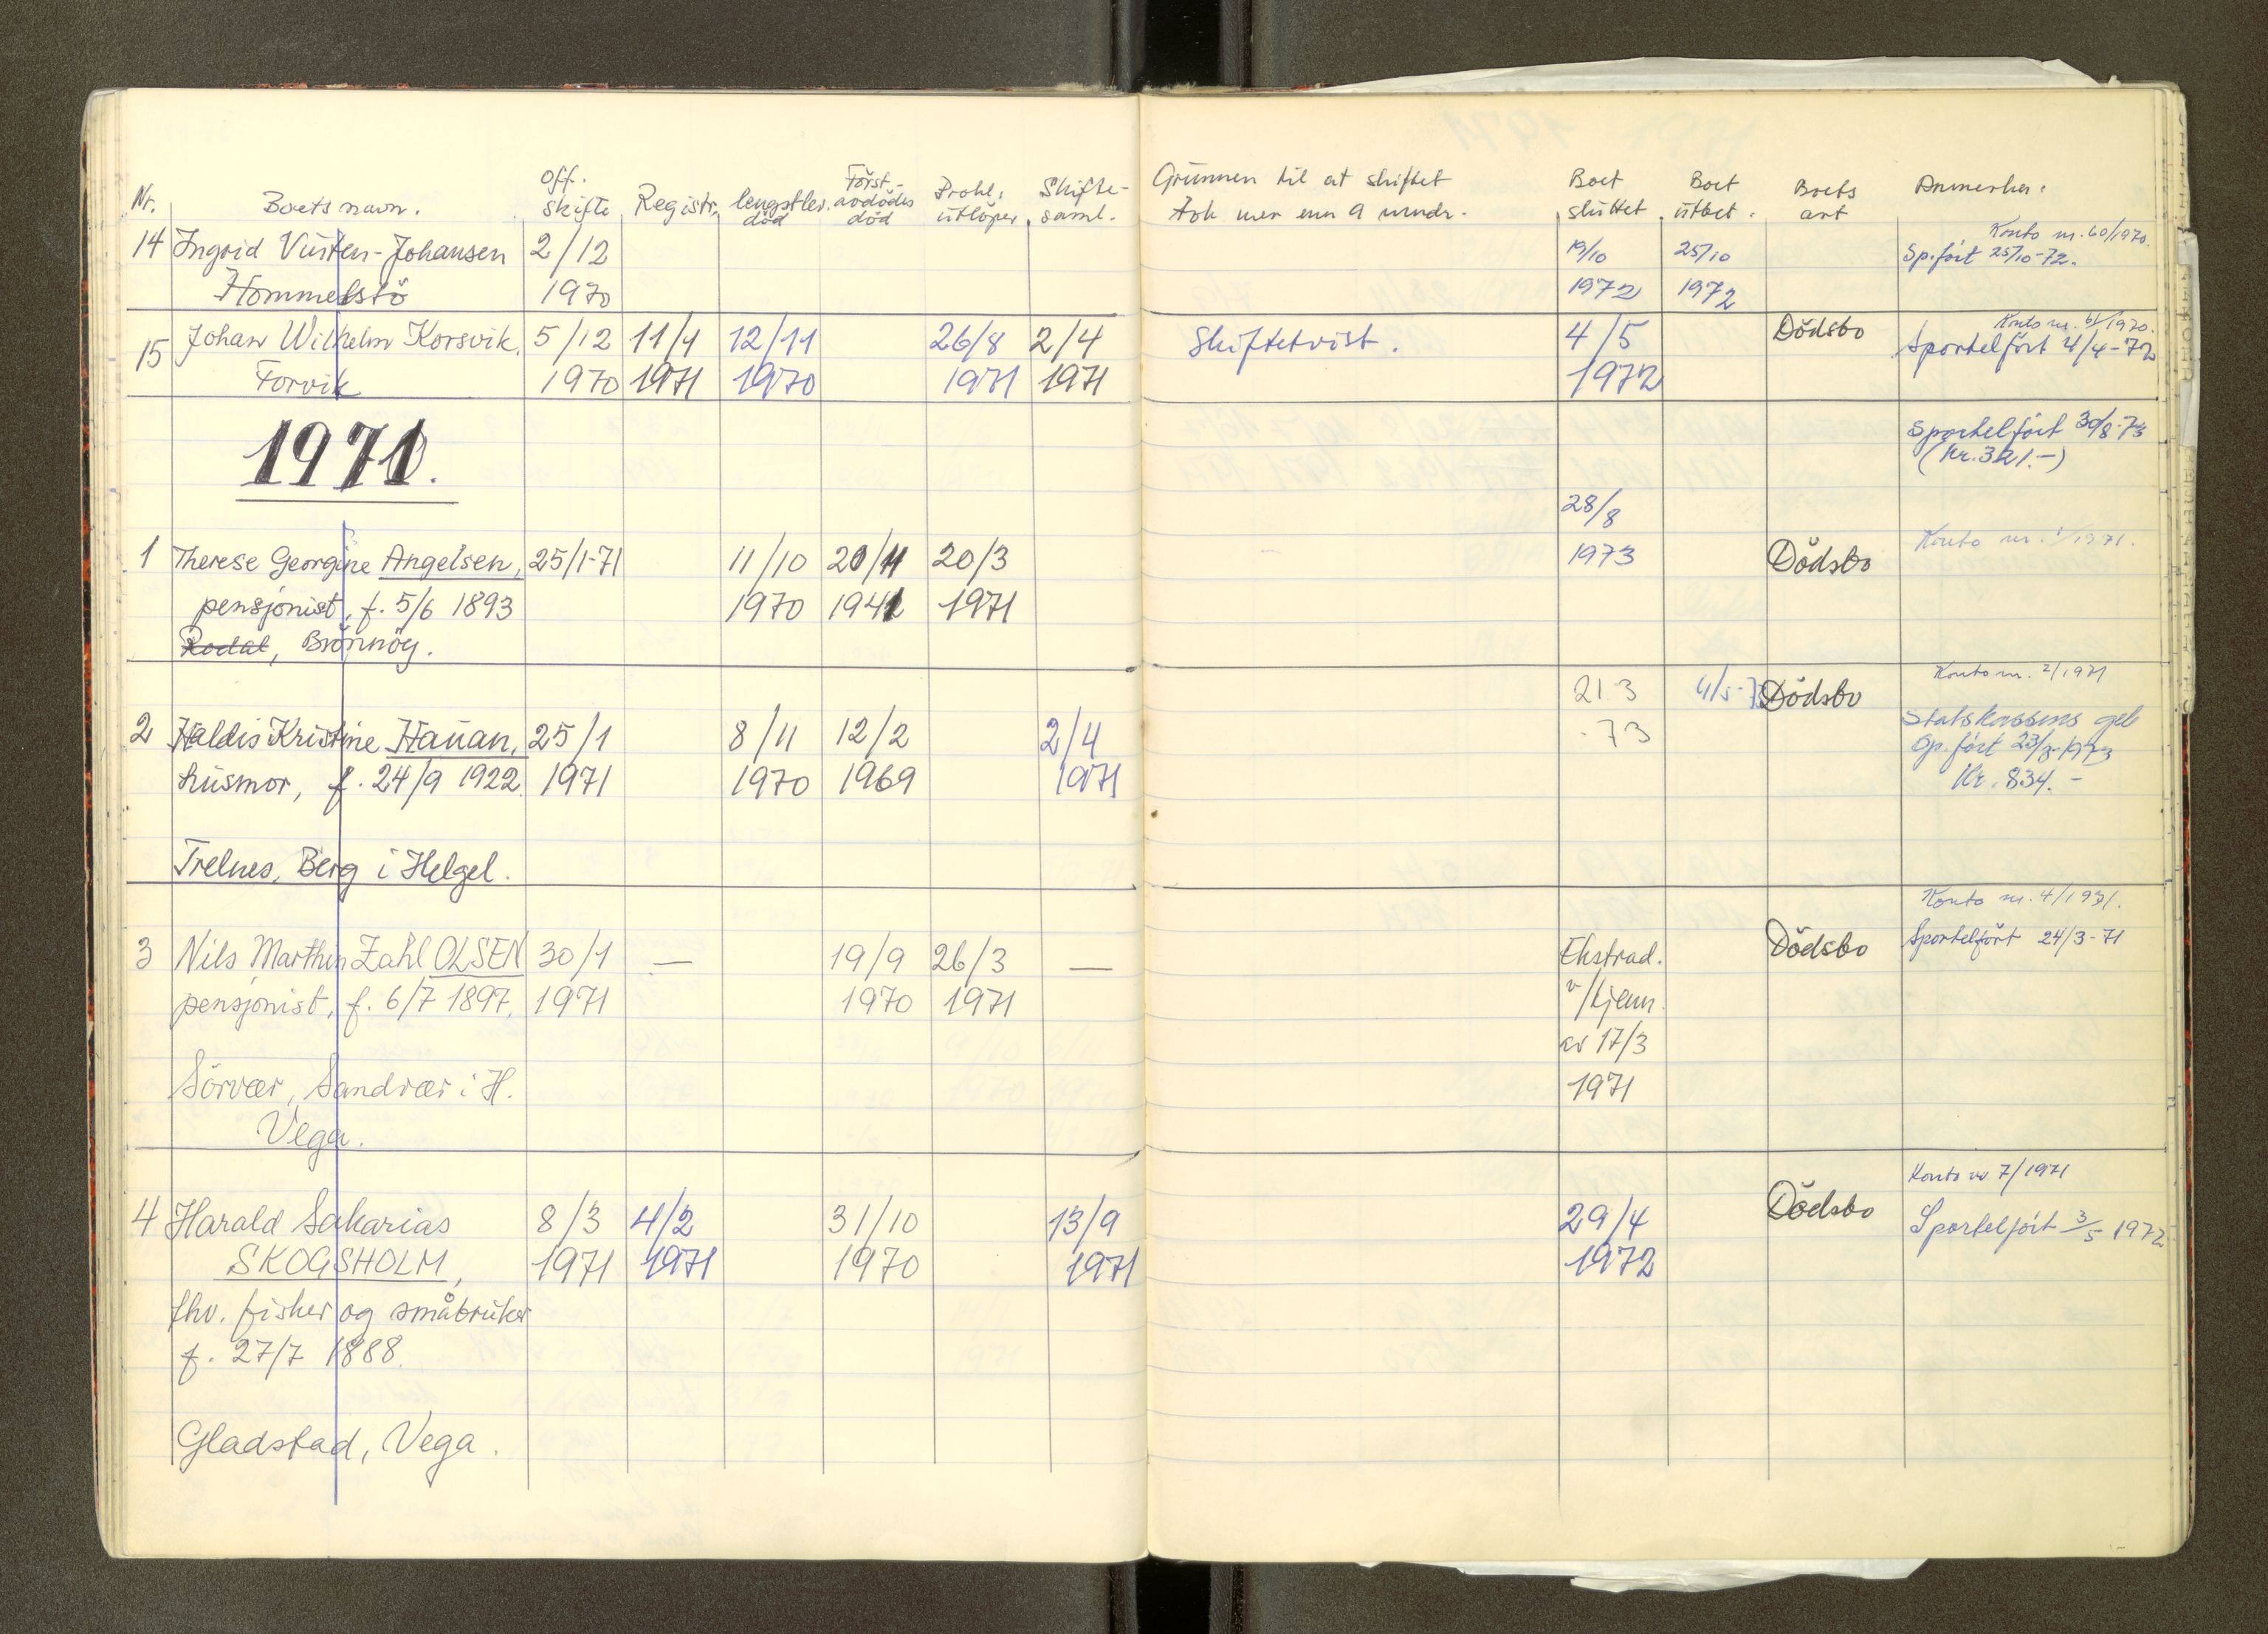 Nr. Boets navn. Off. skifte Registr. lengstlev. død Först-avdödes død Prokl. utlöper Skifte-saml. Grunnen til at skiftet tok mer enn 9 mndr. Boet sluttet Boet utbet. Boets art Anmerkn.
14 Ingrid 2/12 19/10 25/10 Konto nr. 60/1970.
Hommelstö 1970 1972 1972 Sp.ført 25/10-72.
15 Johan Wilhelm Korsvik, 5/12 11/1 12/11 26/8 2/4 Skiftetvist. 4/5 Dödsbo Konto nr. 61/1970.
Forvik 1970 1971 1970 1971 1971 1972 Sportelført 4/4-72
1971.
Sportelført 30/8-73
(kr. 321.-)
28/8
1 Therese Georgine Angelsen, 25/1-71 11/10 20/11 20/3 1973 Dödsbo Konto nr. 1/1971.
pensjonist, f. 5/6 1893 1970 1941 1971
Rodal, Brönnöy.
Konto nr. 2/1971
21.3 4/5-73 Dödsbo
2 Haldis Kristine Hauan, 25/1 8/11 12/2 2/4 -73 Statskassens geb
husmor, f. 24/9 1922. 1971 1970 1969 1971 Sp.ført 23/3-1973
Kr. 834.-
Trelnes, Berg i Helgel.
Konto nr. 4/1971.
3 Nils Marthin Zahl OLSEN 30/1 — 19/9 26/3 — Ekstrad. Dödsbo Sportelført 24/3-71
pensjonist, f. 6/7 1897, 1971 1970 1971 v/kjenn.
av 17/3
Sörvær, Sandvær i H. 1971
Vega.
Konto nr 7/1971
4 Harald Sakarias 8/3 4/2 31/10 13/9 29/4 Dödsbo Sportelført 3/5 1972
SKOGSHOLM, 1971 1971 1970 1971 1972
fhv. fisker og småbruker
f. 27/7 1888.
Gladstad, Vega.